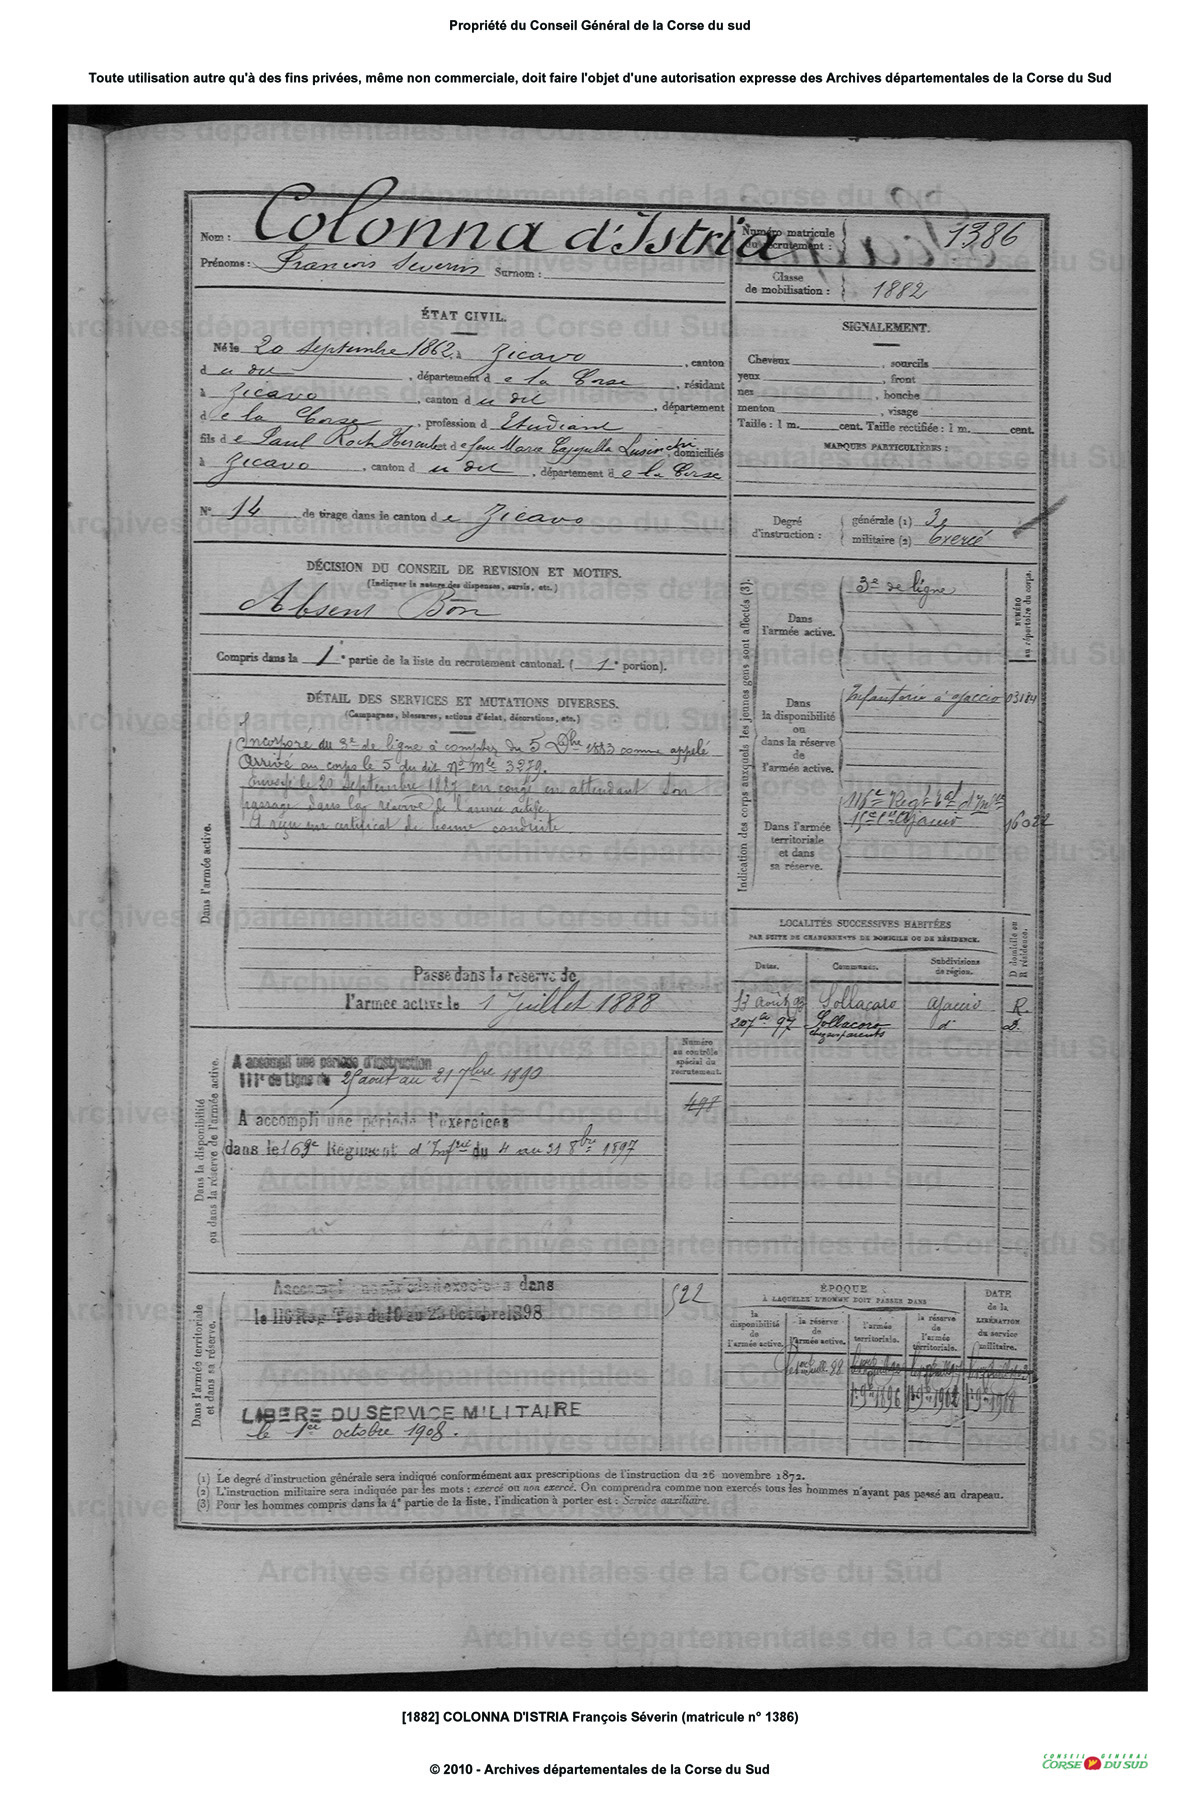 Propriété du Conseil Général de la Corse du sud
Toute utilisation autre qu'à des fins privées, même non commerciale, doit faire l'objet d'une autorisation expresse des Archives départementales de la Corse du Sud
Nom : Colonna d'Istria
Prénoms : François Severin Surnom :
Numéro matricule du recrutement : 1386
Classe de mobilisation : 1882
ÉTAT CIVIL.
Né le 20 Septembre 1862, à Zicavo, canton
d u dit, département d e la Corse, résidant
à Zicavo, canton d u dit, département
d e la Corse, profession d Etudiant
fils d e Paul Roch Hercule et d e feue Marie Cappella Lusinchi, domiciliés
à Zicavo, canton d u dit, département d e la Corse
N° 14 de tirage dans le canton d e Zicavo
SIGNALEMENT.
Cheveux , sourcils
yeux , front
nez , bouche
menton , visage
Taille : 1 m. cent. Taille rectifiée : 1 m. cent.
MARQUES PARTICULIÈRES :
Degré d'instruction : générale (1) 3e
militaire (2) Exercé
DÉCISION DU CONSEIL DE REVISION ET MOTIFS.
(Indiquer la nature des dispenses, sursis, etc.)
Absent Bon
Compris dans la 1e partie de la liste du recrutement cantonal. (1e portion).
DÉTAIL DES SERVICES ET MUTATIONS DIVERSES.
(Campagnes, blessures, actions d'éclat, décorations, etc.)
Dans l'armée active.
Incorporé du 3e de ligne à compter du 5 Xbre 1883 comme appelé
Arrivé au corps le 5 du dit N° Mle 3279.
Envoyé le 20 Septembre 1887 en congé en attendant son
passage dans la réserve de l'armée active
A reçu un certificat de bonne conduite
Passé dans la réserve de
l'armée active le 1 Juillet 1888
Indication des corps auxquels les jeunes gens sont affectés (3).
Dans l'armée active. 3e de ligne
NUMÉRO au répertoire du corps.
Dans la disponibilité ou dans la réserve de l'armée active. Infanterie à Ajaccio 03184
Dans l'armée territoriale et dans sa réserve. 116e Regt tal d'Inftie
16022
LOCALITÉS SUCCESSIVES HABITÉES
PAR SUITE DE CHANGEMENTS DE DOMICILE OU DE RÉSIDENCE.
Dates. Communes. Subdivisions de région. D domicile ou R résidence.
13 août 93 Sollacaro Ajaccio R.
20 7bre 97 Sollacaro d° D.
Dans la disponibilité ou dans la réserve de l'armée active.
A accompli une période d'instruction
111e de Ligne du 25 aout au 21 7bre 1890
A accompli une période d'exercices
dans le 163e Régiment d'Inftie du 4 au 31 8bre 1897
Numéro au contrôle spécial du recrutement.
498
Dans l'armée territoriale et dans sa réserve.
Accompli une période d'exercices dans
le 116 Reg Ter du 10 au 23 Octobre 1898
522
LIBÉRÉ DU SERVICE MILITAIRE
le 1er octobre 1908.
ÉPOQUE
À LAQUELLE L'HOMME DOIT PASSER DANS
la disponibilité de l'armée active. la réserve de l'armée active. l'armée territoriale. la réserve de l'armée territoriale. DATE de la LIBÉRATION du service militaire.
(1) Le degré d'instruction générale sera indiqué conformément aux prescriptions de l'instruction du 26 novembre 1872.
(2) L'instruction militaire sera indiquée par les mots : exercé ou non exercé. On comprendra comme non exercés tous les hommes n'ayant pas passé au drapeau.
(3) Pour les hommes compris dans la 4e partie de la liste, l'indication à porter est : Service auxiliaire.
[1882] COLONNA D'ISTRIA François Séverin (matricule n° 1386)
© 2010 - Archives départementales de la Corse du Sud
CONSEIL GÉNÉRAL
CORSE DU SUD